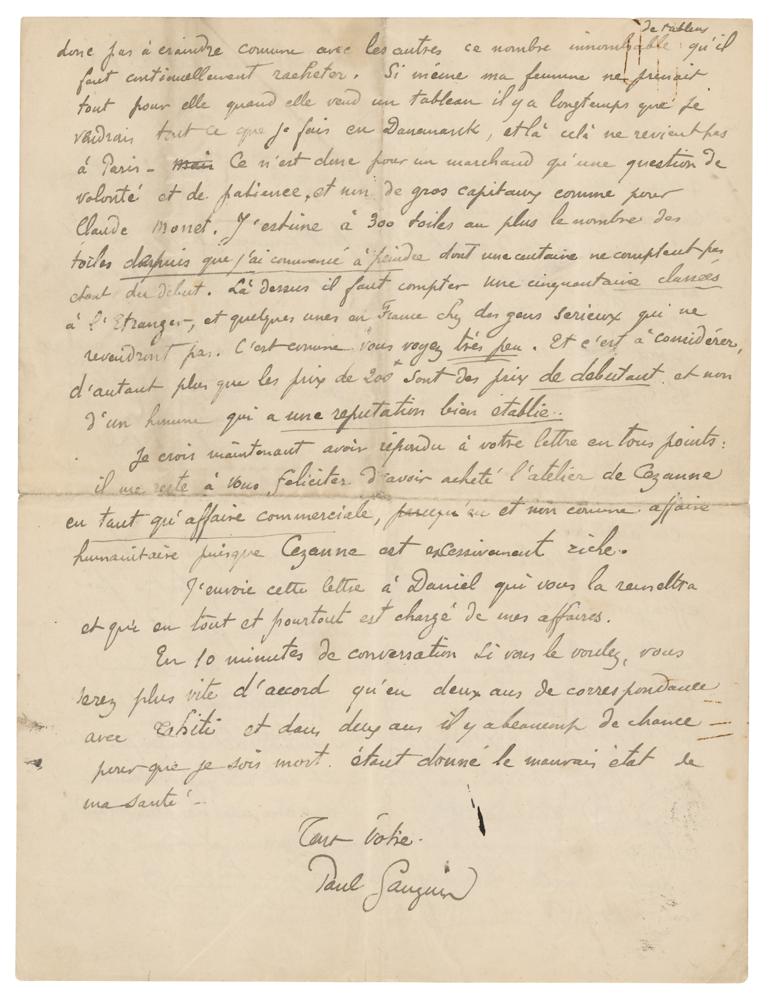 de tableaux
donc pas à craindre comme avec les autres ce nombre innombrable qu'il
faut continuellement racheter. Si même ma femme ne prenait
tout pour elle quand elle vend un tableau il y a longtemps que je
vendrais tout ce que je fais en Danemarck, et là celà ne revient pas
à Paris - mais Ce n'est donc pour un marchand qu'une question de
volonté et de patience, et non de gros capitaux comme pour
Claude Monet. J'estime à 300 toiles au plus le nombre des
toiles depuis que j'ai commencé à peindre dont une centaine ne comptent pas
étant du début. Là dessus il faut compter une cinquantaine classées
à l'Etranger, et quelques unes en France chez des gens serieux qui ne
revendront pas. C'est comme vous voyez très peu. Et c'est à considérer,
d'autant plus que les prix de 200f sont des prix de debutant et non
d'un homme qui a une reputation bien établie..
Je crois maintenant avoir répondu à votre lettre en tous points:
il me reste à vous feliciter d'avoir acheté l'atelier de Cezanne
en tant qu'affaire commerciale, et non comme affaire
humanitaire puisque Cezanne est excessivement riche.
J'envoie cette lettre à Daniel qui vous la remettra
et qui en tout et pourtout est chargé de mes affaires.
En 10 minutes de conversation si vous le voulez, vous
serez plus vite d'accord qu'en deux ans de correspondance
avec Tahiti et dans deux ans il y a beaucoup de chance
pour que je sois mort. étant donné le mauvais état de
ma santé -
Tout Votre.
Paul Gauguin